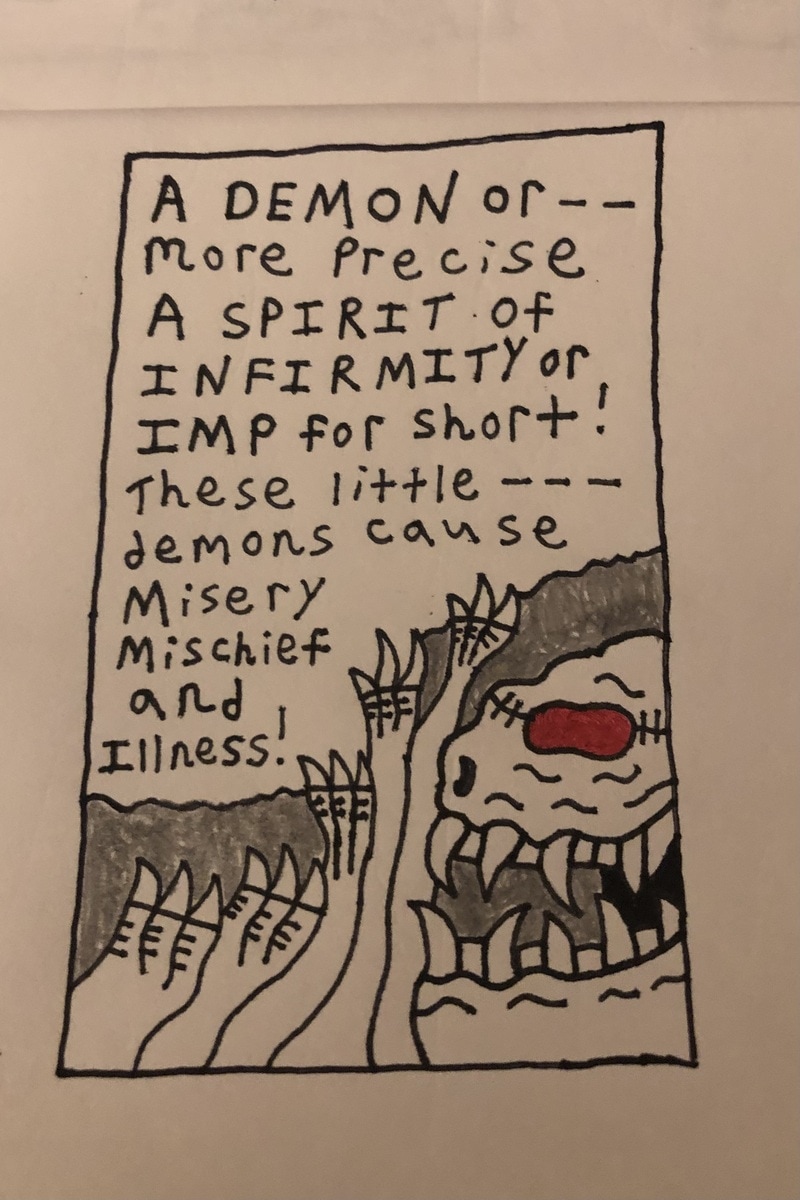 A DEMON or--
more Precise
A SPIRIT of
INFIRMITY or
IMP for short!
These little ---
demons cause
Misery
Mischief
and
Illness!